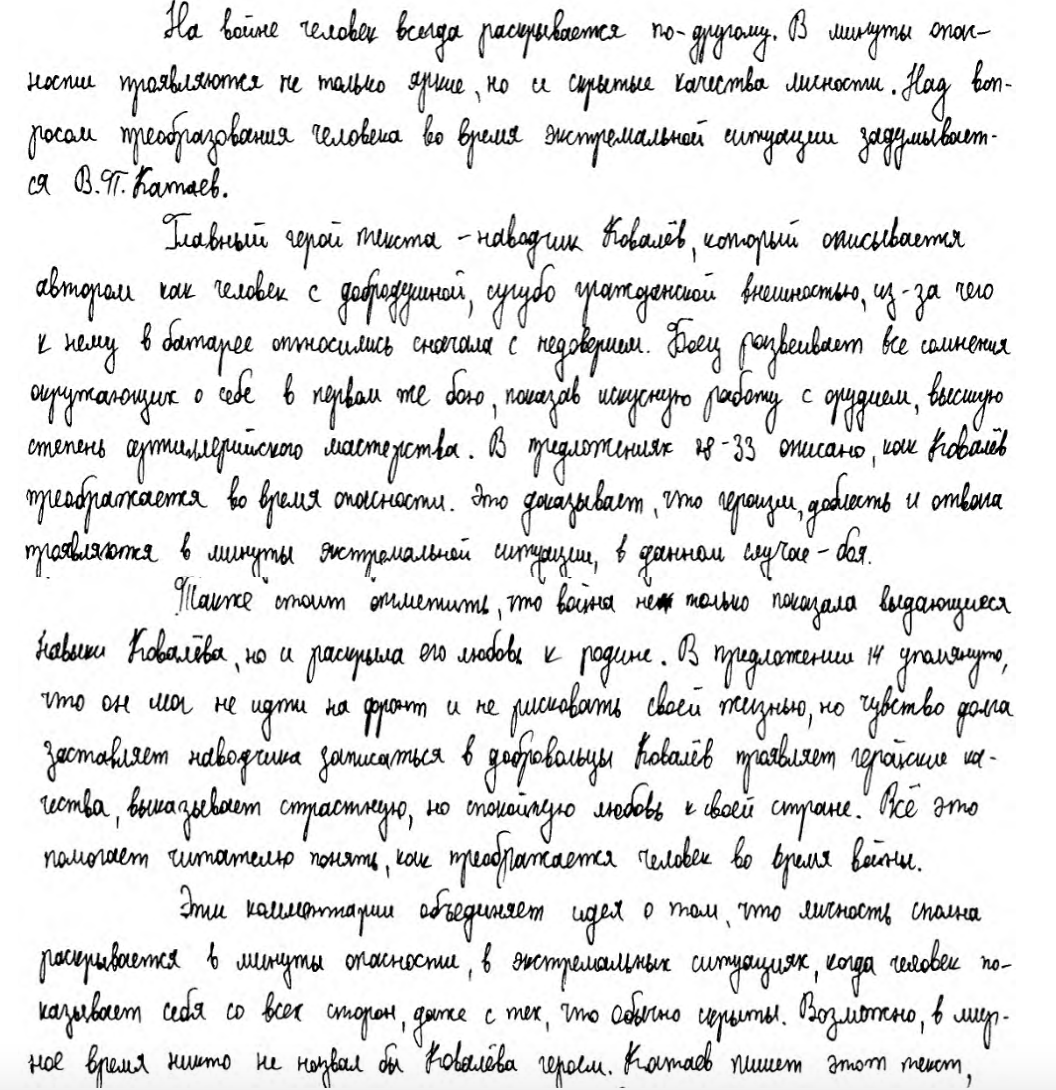 На войне человек всегда раскрывается по-другому. В минуты опас-
ности проявляются не только яркие, но и скрытые качества личности. Над воп-
росом преобразования человека во время экстремальной ситуации задумывает-
ся В.П. Катаев.
Главный герой текста – наводчик Ковалёв, который описывается
автором как человек с добродушной, сугубо гражданской внешностью, из-за чего
к нему в батарее относились сначала с недоверием. Боец развеивает все сомнения
окружающих о себе в первом же бою, показав искусную работу с орудием, высшую
степень артиллерийского мастерства. В предложениях 28-33 описано, как Ковалёв
преображается во время опасности. Это доказывает, что героизм, доблесть и отвага
проявляются в минуты экстремальной ситуации, в данном случае – боя.
Также стоит отметить, что война не только показала выдающиеся
навыки Ковалёва, но и раскрыла его любовь к родине. В предложении 14 упомянуто,
что он мог не идти на фронт и не рисковать своей жизнью, но чувство долга
заставляет наводчика записаться в добровольцы Ковалёв проявляет геройские ка-
чества, выказывает страстную, но спокойную любовь к своей стране. Всё это
помогает читателю понять, как преображается человек во время войны.
Эти комментарии объединяет идея о том, что личность сполна
раскрывается в минуты опасности, в экстремальных ситуациях, когда человек по-
казывает себя со всех сторон, даже с тех, что обычно скрыты. Возможно, в мир-
ное время никто не назвал бы Ковалёва героем. Катаев пишет этот текст,